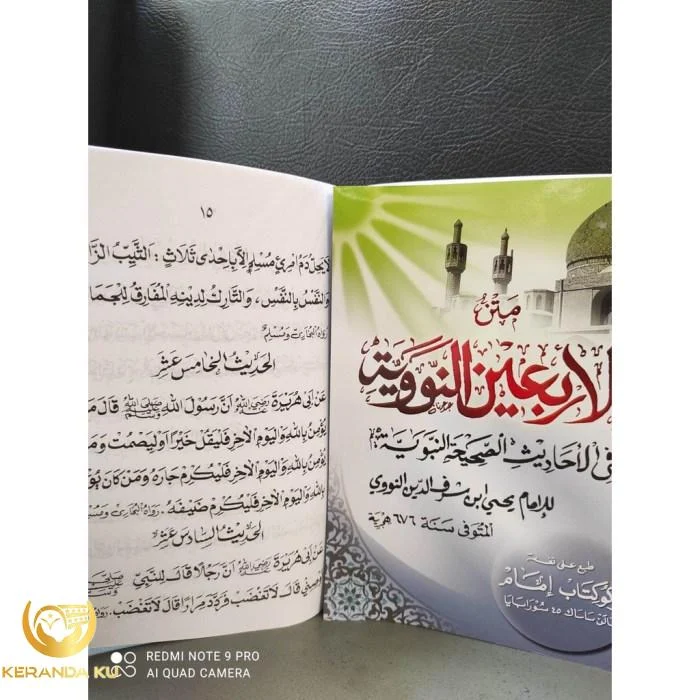 ١٥
لَا يَحِلُّ دَمُ امْرِئٍ مُسْلِمٍ إِلَّا بِإِحْدَى ثَلَاثٍ : اَلثَّيِّبُ
وَالنَّفْسُ بِالنَّفْسِ ، وَالتَّارِكُ لِدِيْنِهِ الْمُفَارِقُ
رواه البخارى ومسلم
الحديث الخامس عشر
عَنْ اَبِى هُرَيْرَةَ رَضِيَ اللهُ اَنَّ رَسُوْلَ اللهِ ﷺ قَالَ
يُؤْمِنُ بِاللهِ وَالْيَوْمِ الْآخِرِ فَلْيَقُلْ خَيْرًا اَوْ لِيَصْمُتْ
يُؤْمِنُ بِاللهِ وَالْيَوْمِ الْآخِرِ فَلْيُكْرِمْ جَارَهُ وَمَنْ كَانَ
بِاللهِ وَالْيَوْمِ الْآخِرِ فَلْيُكْرِمْ ضَيْفَهُ . رواه البخارى
الحديث السادس عشر
عَنْ اَبِى هُرَيْرَةَ رَضِيَ اللهُ اَنَّ رَجُلًا قَالَ لِلنَّبِيِّ
قَالَ لَا تَغْضَبْ فَرَدَّدَ مِرَارًا قَالَ لَا تَغْضَبْ .
متن
الاربعين النووية
فى الأحاديث الصحيحة النبوية
للإمام يحيى ابن شرف الدين النووى
المتوفى سنة ٦٧٦ هجرية
طبع على نفقة
كتاب إمام
ساساك ٤٥ سورابايا
KERANDA KU
REDMI NOTE 9 PRO
AI QUAD CAMERA